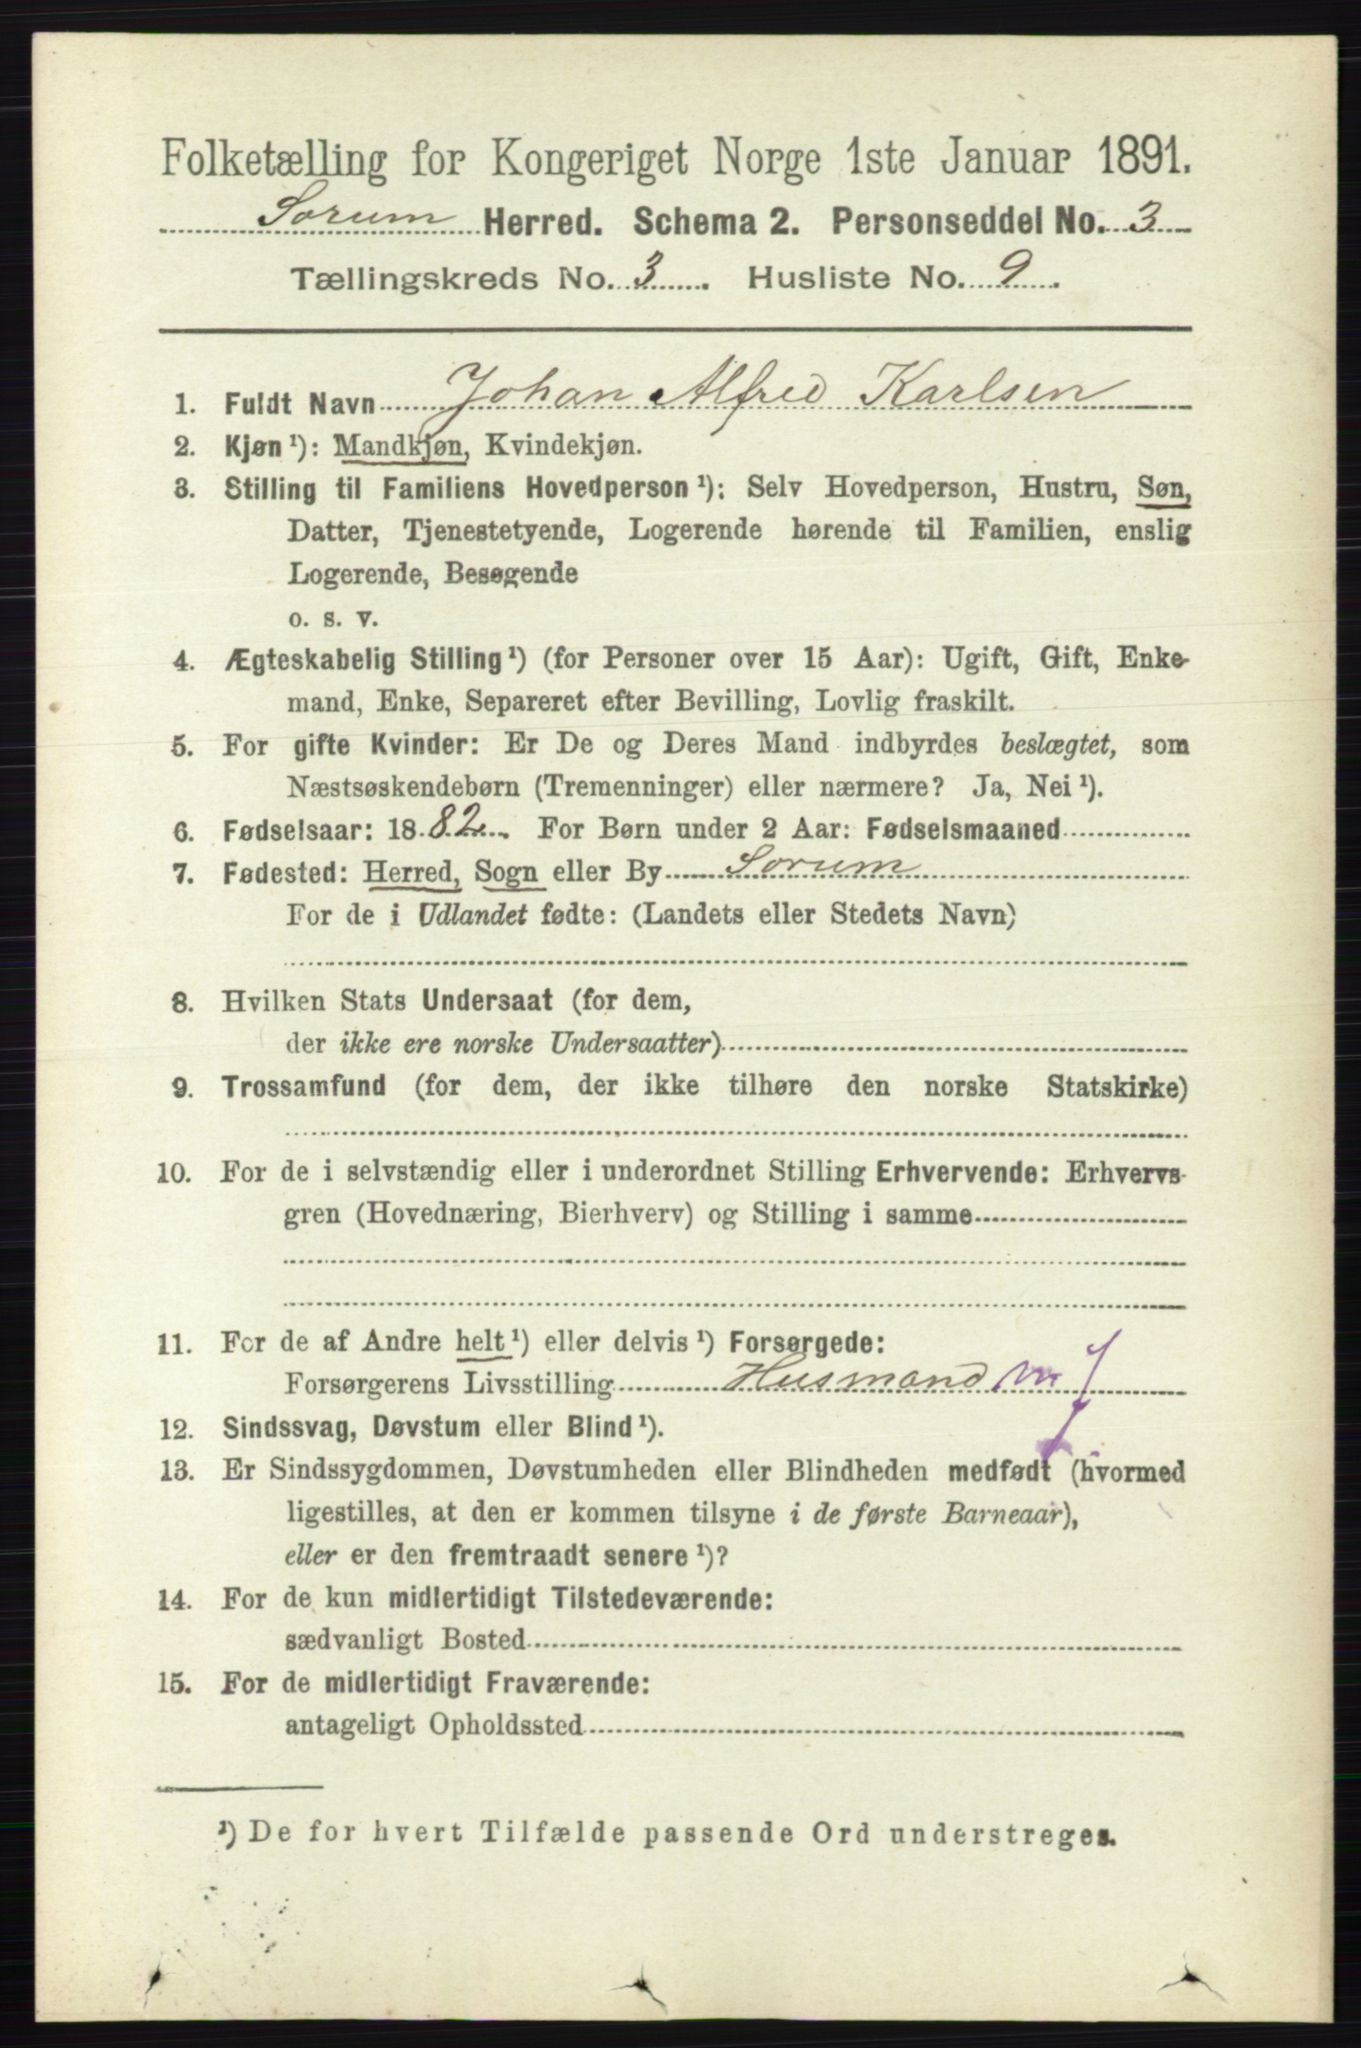 Folketælling for Kongeriget Norge 1ste Januar 1891.
Sorum Herred. Schema 2. Personseddel No. 3
Tællingskreds No. 3. Husliste No. 9.
1. Fuldt Navn Johan Alfred Karlsen
2. Kjøn ¹): Mandkjøn, Kvindekjøn.
3. Stilling til Familiens Hovedperson ¹): Selv Hovedperson, Hustru, Søn,
Datter, Tjenestetyende, Logerende hørende til Familien, enslig
Logerende, Besøgende
o. s. v.
4. Ægteskabelig Stilling ¹) (for Personer over 15 Aar): Ugift, Gift, Enke-
mand, Enke, Separeret efter Bevilling, Lovlig fraskilt.
5. For gifte Kvinder: Er De og Deres Mand indbyrdes beslægtet, som
Næstsøskendebørn (Tremenninger) eller nærmere? Ja, Nei ¹).
6. Fødselsaar: 1882. For Børn under 2 Aar: Fødselsmaaned
7. Fødested: Herred, Sogn eller By Sorum
For de i Udlandet fødte: (Landets eller Stedets Navn)
8. Hvilken Stats Undersaat (for dem,
der ikke ere norske Undersaatter)
9. Trossamfund (for dem, der ikke tilhøre den norske Statskirke)
10. For de i selvstændig eller i underordnet Stilling Erhvervende: Erhvervs-
gren (Hovednæring, Bierhverv) og Stilling i samme
11. For de af Andre helt ¹) eller delvis ¹) Forsørgede:
Forsørgerens Livsstilling Husmand m J
12. Sindssvag, Døvstum eller Blind ¹).
13. Er Sindssygdommen, Døvstumheden eller Blindheden medfødt (hvormed
ligestilles, at den er kommen tilsyne i de første Barneaar),
eller er den fremtraadt senere ¹)?
14. For de kun midlertidigt Tilstedeværende:
sædvanligt Bosted
15. For de midlertidigt Fraværende:
antageligt Opholdssted
¹) De for hvert Tilfælde passende Ord understreges.